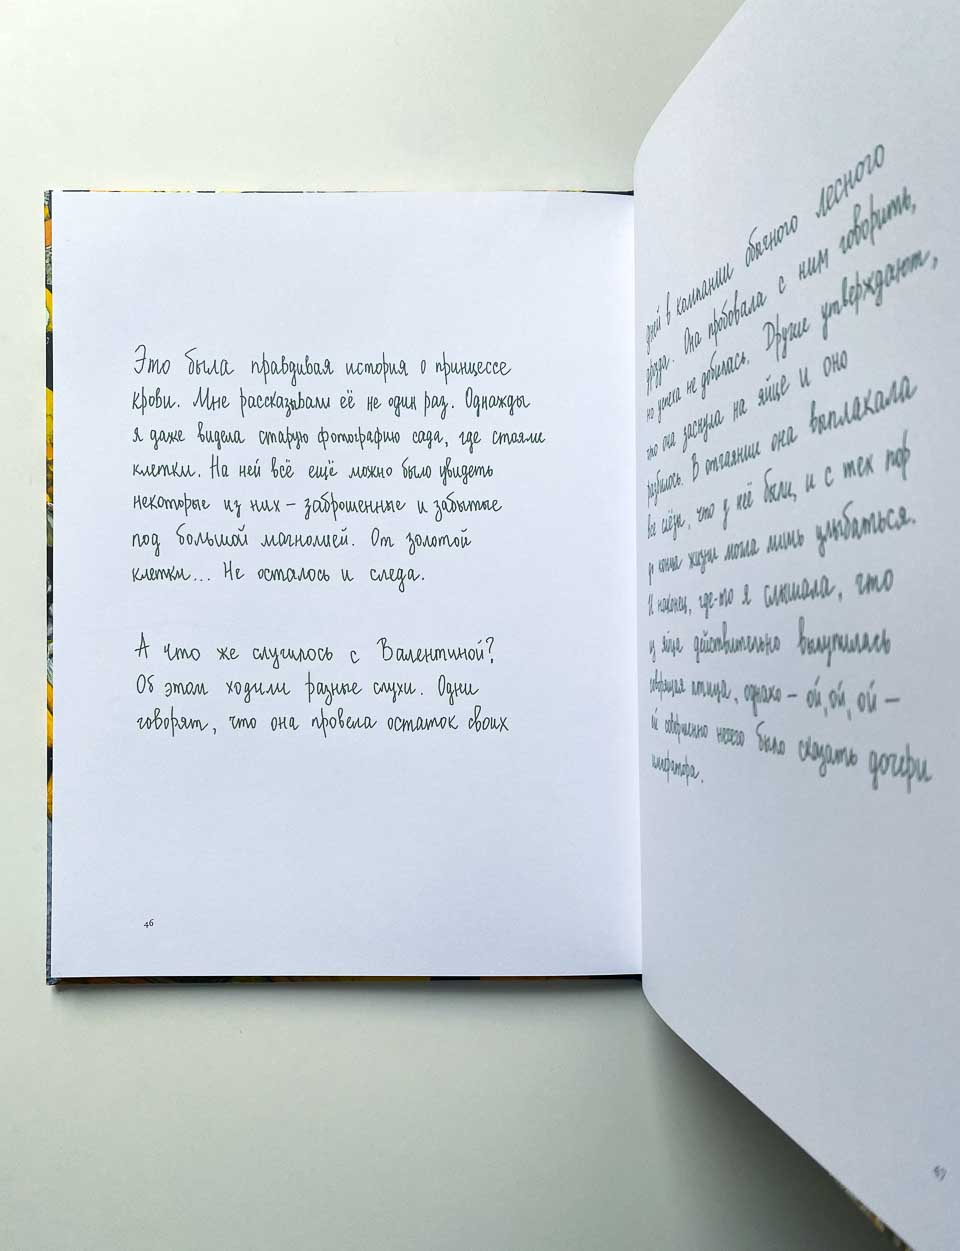 Это была правдивая история о принцессе
крови. Мне рассказывали её не один раз. Однажды
я даже видела старую фотографию сада, где стояли
клетки. На ней всё ещё можно было увидеть
некоторые из них – заброшенные и забытые
под большой магнолией. От золотой
клетки... Не осталось и следа.
А что же случилось с Валентиной?
Об этом ходили разные слухи. Одни
говорят, что она провела остаток своих
46
дней в компании обычного лесного
дрозда. Она пробовала с ним говорить,
но успеха не добилась. Другие утверждают,
что она заснула на яйце и оно
разбилось. В отчаянии она выплакала
все слёзы, что у неё были, и с тех пор
до конца жизни могла лишь улыбаться.
И наконец, где-то я слышала, что
из яйца действительно вылупилась
говорящая птица, однако – ой, ой, ой –
ей совершенно нечего было сказать дочери
императора.
47